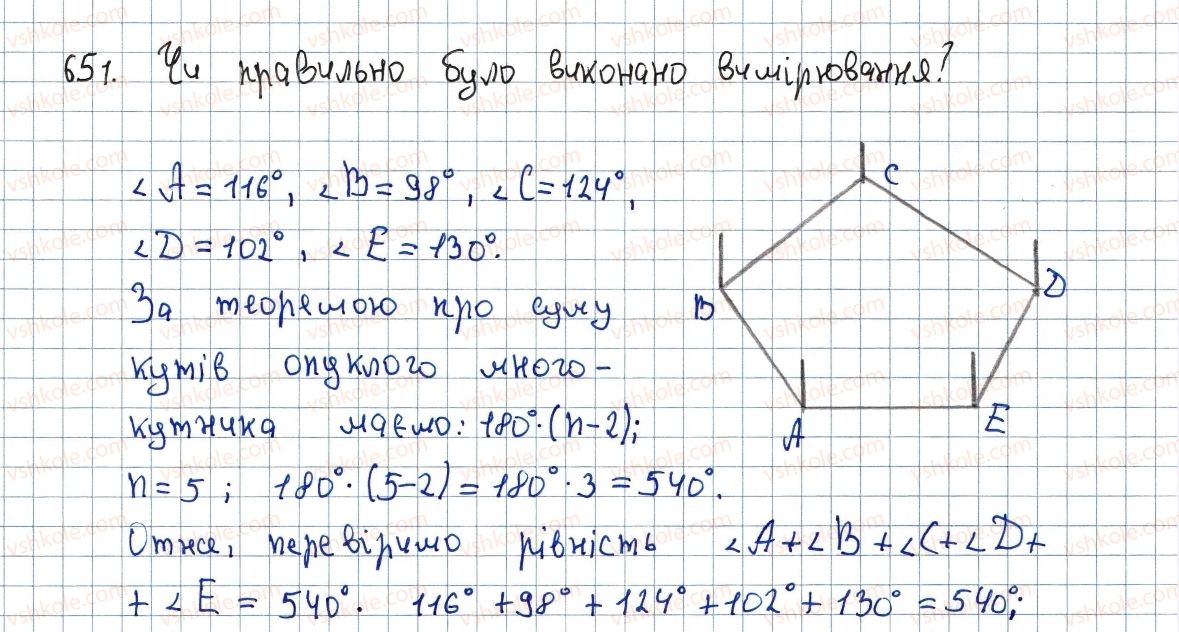 651. Чи правильно було виконано вимірювання?
∠A = 116°, ∠B = 98°, ∠C = 124°,
∠D = 102°, ∠E = 130°.
За теоремою про суму
кутів опуклого много-
кутника маємо: 180°·(n-2);
n = 5; 180°·(5-2) = 180°·3 = 540°.
Отже, перевіримо рівність ∠A+∠B+∠C+∠D+
+∠E = 540°. 116°+98°+124°+102°+130° = 540°;
C
B
D
A
E
vshkole.com